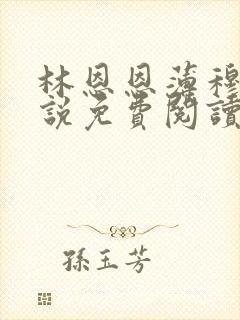 林恩恩薄穆
說免費閱讀
孫玉芳